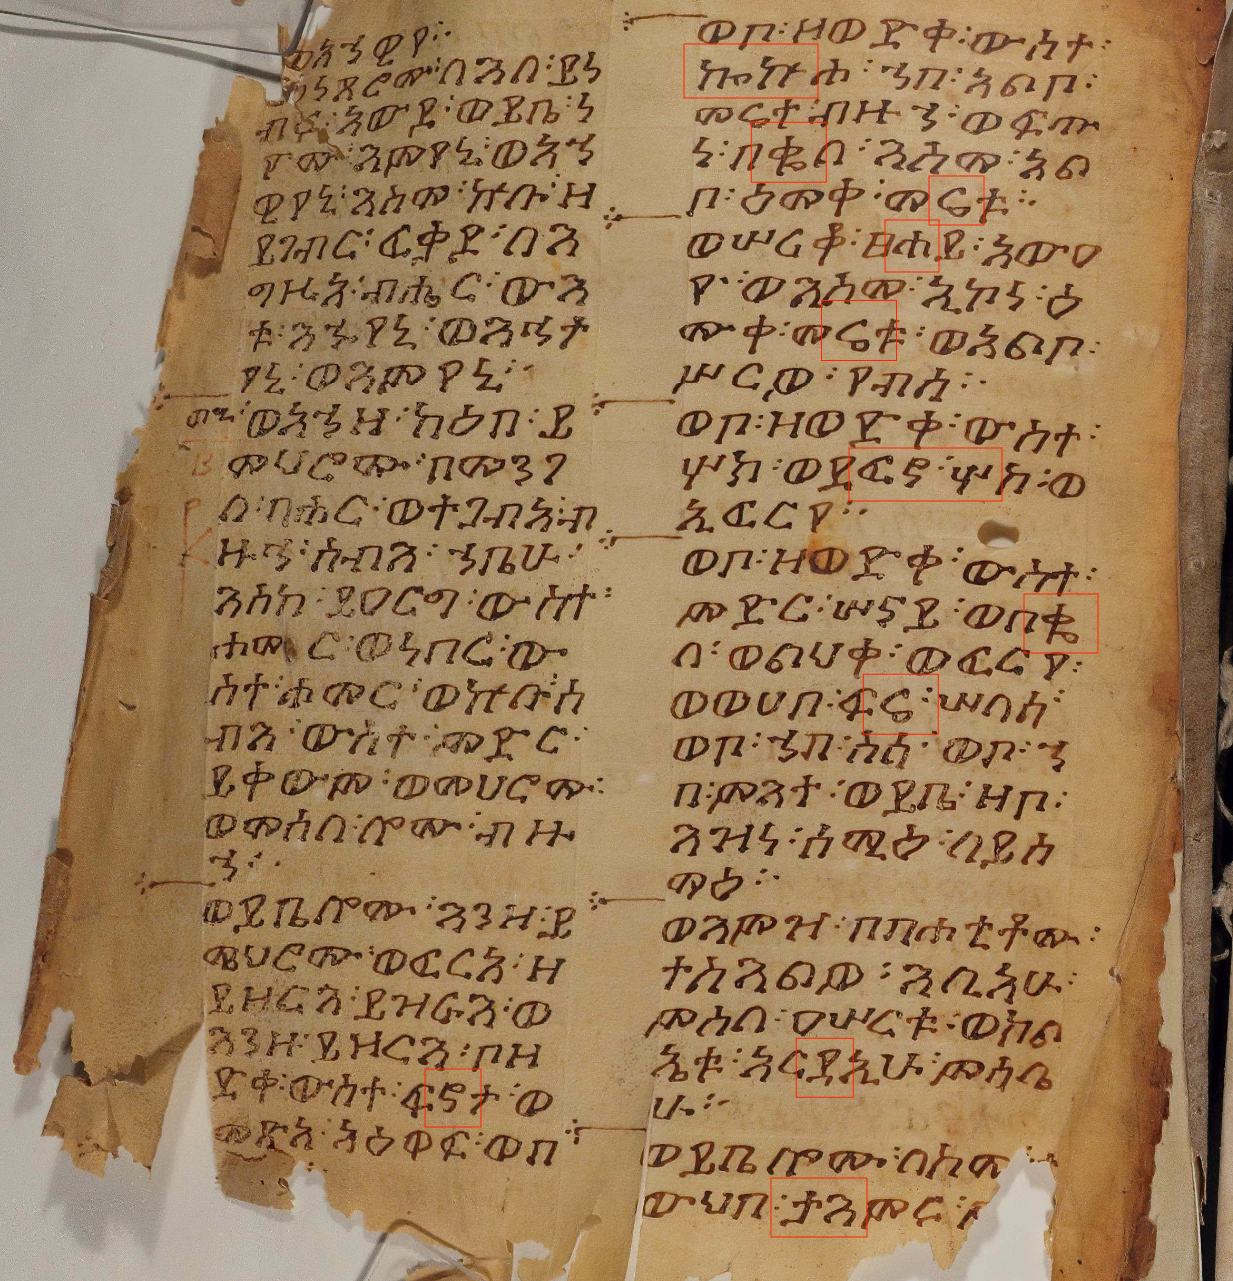 ወነጸሮሙ፡ ለእለ፡ ይነ
ብሩ፡ አውደ፡ ወይቤ፡ ነ
ዮሙ፡ እምየኒ፡ ወአኀ
ዊየኒ፡ እስመ፡ ኵሉ፡ ዘ
ይገብር፡ ፈቃደ፡ ለእ
ግዚአ፡ ብሔር፡ ውእ
ቱ፡ እኁየኒ፡ ወእኅት
የኒ፡ ወእምየኒ።
ወአኀዘ፡ ካዕበ፡ ይ
ምሀሮሙ፡ በመንገ
ለ፡ ባሕር፡ ወተጋብአ፡ ብ
ዙኅ፡ ሰብእ፡ ኀቤሁ፡
እስከ፡ ይዐርግ፡ ውስተ፡
ሐመር፡ ወነበረ፡ ው
ስተ፡ ሐመር፡ ወኵሉ፡ ሰ
ብእ፡ ውስተ፡ ምድር፡
ይቀውም፡ ወመሀሮሙ፡
ወመሰለ፡ ሎሙ፡ ብዙ
ኀ።
ወይቤሎሙ፡ እንዘ፡ ይ
ሜህሮሙ፡ ወፈርአ፡ ዘ
ይዘርእ፡ ይዝራእ፡ ወ
እንዘ፡ ይዘርእ፡ ቦዘ
ወድቀ፡ ውስተ፡ ፍኖት፡ ወ
መጽአ፡ አዕዋፍ፡ ወበ
ወቦ፡ ዘወድቀ፡ ውስተ፡
ኰኵሕ፡ ኀበ፡ አልቦ፡
መሬት፡ ብዙኀ፡ ወፍጡ
ነ፡ በቈለ፡ እስመ፡ አል
ቦ፡ ዕመቀ፡ መሬት�።
ወሠሪቆ፡ ፀሐይ፡ አውዐ
የ፡ ወእስመ፡ ኢኮነ፡ ዕ
ሙቀ፡ መሬቱ፡ ወአልቦ፡
ሥርወ፡ የብሰ።
ወቦ፡ ዘወድቀ፡ ውስተ፡
ሦክ፡ ወደፈኖ፡ ሦክ፡ ወ
ኢፈርየ።
ወቦ፡ ዘወድቀ፡ ውስተ፡
ምድር፡ ሠናይ፡ ወበቈ
ለ፡ ወልህቀ፡ ወፈርየ፡
ወወሀበ፡ ፍሬ፡ ሠላሳ፡
ወቦ፡ ኀበ፡ ስሳ፡ ወቦ፡ ኀ
በ፡ ምእት፡ ወይቤ፡ ዘቦ፡
እዝነ፡ ሰሚዕ፡ ለይስ
ማዕ።
ወእምዝ፡ በባሕቲቶሙ፡
ተስእልዎ፡ እሊአሁ፡
ምስለ፡ ዐሠርቱ፡ ወክል
ኤቱ፡ አርዳኢሁ፡ ምሳሌ
ሁ።
ወይቤሎሙ፡ ለክሙ፡
ውህበ፡ ታእምር፡